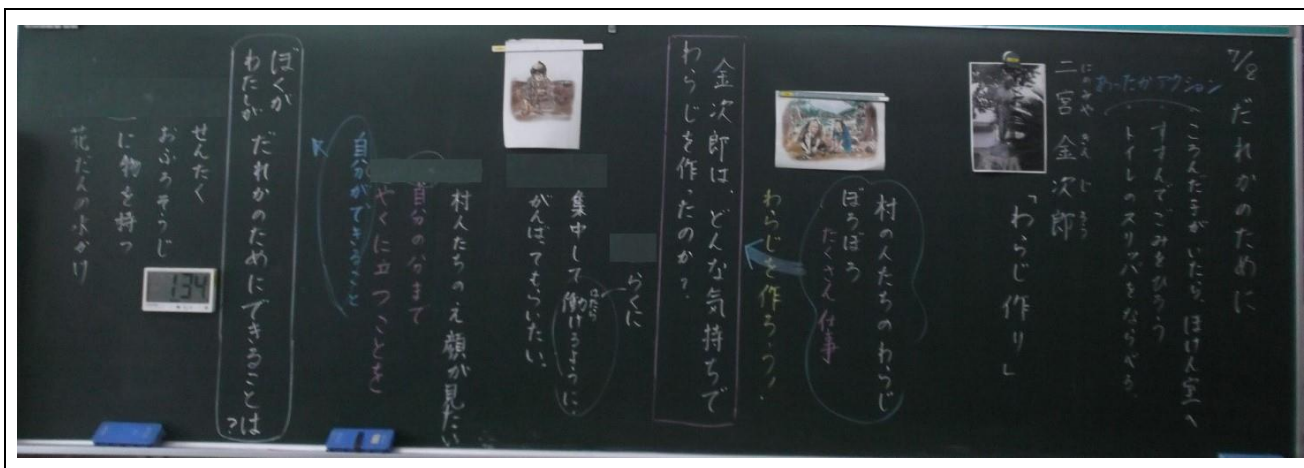 7/8 だれかのために
あったかアクション
ころんだ子がいたら、ほけん室へ
すすんでごみをひろう
トイレのスリッパをならべる。
にのみや きん じ ろう
二宮金次郎
「わらじ作り」
村の人たちのわらじ
ぼろぼろ
たくさん仕事
わらじを作ろう!
金次郎は、どんな気持ちで
わらじを作ったのか?
らくに
はたら
集中して働けるように。
がんばってもらいたい。
村人たちのえ顔が見たい
自分の分まで
やくに立つことを
自分ができること
ぼくが
わたしが
だれかのためにできることは?
せんたく
おふろそうじ
に物を持つ
花だんの水かけ
134